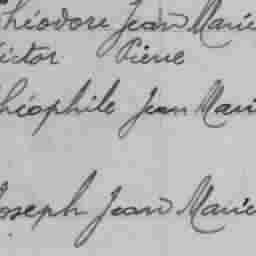 Théodore Jean Marie
Victor Pierre
Théophile Jean Marie
Joseph Jean Marie